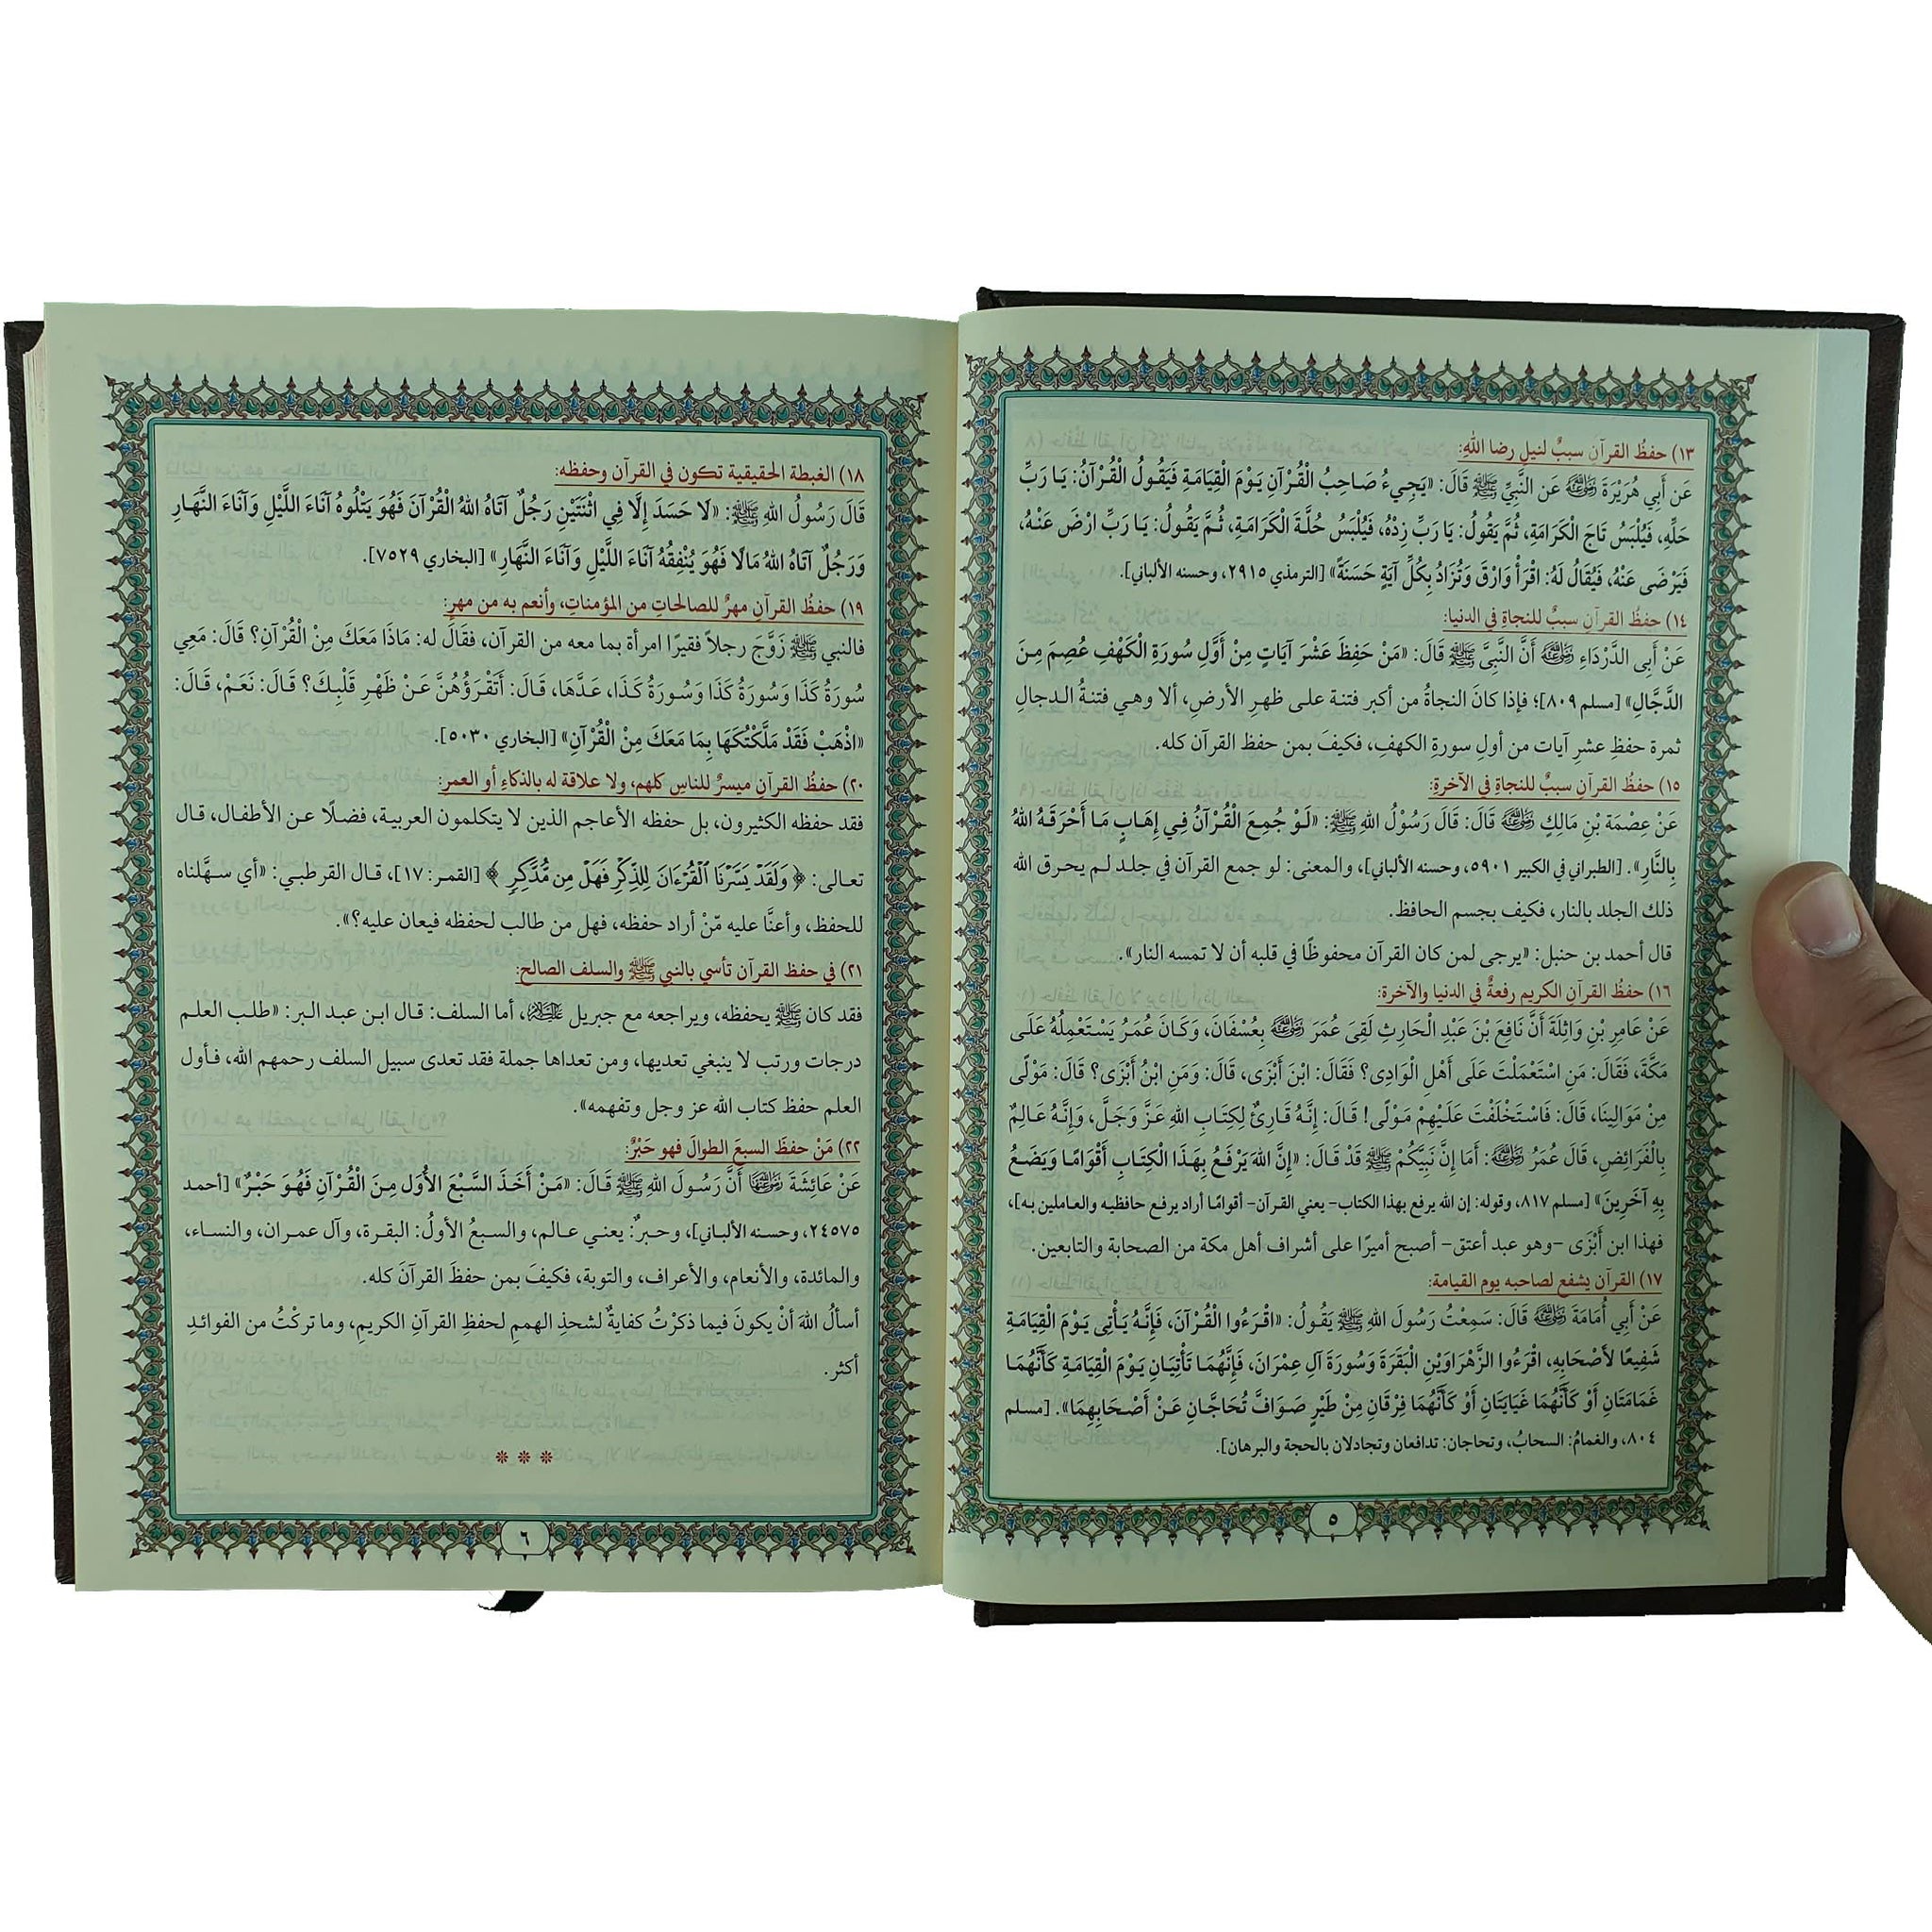 ١٣) حفظُ القرآن سببٌ لنيلِ رضا اللهِ:
عَن أَبِي هُرَيْرَةَ رَضِيَ اللهُ عَنْهُ عَن النَّبِيِّ ﷺ قَالَ: «يَجِيءُ صَاحِبُ الْقُرْآنِ يَوْمَ الْقِيَامَةِ فَيَقُولُ الْقُرْآنُ: يَا رَبِّ
حَلِّهِ، فَيُلْبَسُ تَاجَ الْكَرَامَةِ، ثُمَّ يَقُولُ: يَا رَبِّ زِدْهُ، فَيُلْبَسُ حُلَّةَ الْكَرَامَةِ، ثُمَّ يَقُولُ: يَا رَبِّ ارْضَ عَنْهُ،
فَيَرْضَى عَنْهُ، فَيُقَالُ لَهُ: اقْرَأْ وَارْقَ وَتُزَادُ بِكُلِّ آيَةٍ حَسَنَةً» [الترمذي ٢٩١٥، وحسنه الألباني].
١٤) حفظُ القرآنِ سببٌ للنجاةِ في الدنيا:
عَنْ أَبِى الدَّرْدَاءِ رَضِيَ اللهُ عَنْهُ أَنَّ النَّبِيَّ ﷺ قَالَ: «مَنْ حَفِظَ عَشْرَ آيَاتٍ مِنْ أَوَّلِ سُورَةِ الْكَهْفِ عُصِمَ مِنَ
الدَّجَّالِ» [مسلم ٨٠٩]؛ فإذا كانَ النجاةُ من أكبر فتنة على ظهرِ الأرضِ، ألا وهي فتنةُ الدجالِ
ثمرة حفظِ عشرِ آيات من أولِ سورةِ الكهفِ، فكيفَ بمن حفظ القرآن كله.
١٥) حفظُ القرآنِ سببٌ للنجاةِ في الآخرةِ:
عَنْ عِصْمَة بْنِ مَالِكٍ رَضِيَ اللهُ عَنْهُ قَالَ: قَالَ رَسُوْلُ اللهِ ﷺ: «لَوْ جُمِعَ الْقُرْآنُ فِي إِهَابٍ مَا أَحْرَقَهُ اللهُ
بِالنَّارِ». [الطبراني في الكبير ٥٩٠١، وحسنه الألباني]، والمعنى: لو جمع القرآن في جلد لم يحرق الله
ذلك الجلد بالنار، فكيف بجسم الحافظ.
قال أحمد بن حنبل: «يرجى لمن كان القرآن محفوظًا في قلبه أن لا تمسه النار».
١٦) حفظُ القرآنِ الكريم رفعةٌ في الدنيا والآخرة:
عَنْ عَامِرِ بْنِ وَاثِلَةَ أَنَّ نَافِعَ بْنَ عَبْدِ الْحَارِثِ لَقِىَ عُمَرَ رَضِيَ اللهُ عَنْهُ بِعُسْفَانَ، وَكَانَ عُمَرُ يَسْتَعْمِلُهُ عَلَى
مَكَّةَ، فَقَالَ: مَنِ اسْتَعْمَلْتَ عَلَى أَهْلِ الْوَادِى؟ فَقَالَ: ابْنَ أَبْزَى، قَالَ: وَمَنِ ابْنُ أَبْزَى؟ قَالَ: مَوْلًى
مِنْ مَوَالِينَا، قَالَ: فَاسْتَخْلَفْتَ عَلَيْهِمْ مَوْلًى! قَالَ: إِنَّهُ قَارِئٌ لِكِتَابِ اللهِ عَزَّ وَجَلَّ، وَإِنَّهُ عَالِمٌ
بِالْفَرَائِضِ، قَالَ عُمَرُ رَضِيَ اللهُ عَنْهُ: أَمَا إِنَّ نَبِيَّكُمْ ﷺ قَدْ قَالَ: «إِنَّ اللهَ يَرْفَعُ بِهَذَا الْكِتَابِ أَقْوَامًا وَيَضَعُ
بِهِ آخَرِينَ» [مسلم ٨١٧، وقوله: إن الله يرفع بهذا الكتاب- يعني القرآن- أقوامًا أراد يرفع حافظيه والعاملين به]،
فهذا ابن أَبْزَى -وهو عبد أعتق- أصبح أميرًا على أشراف أهل مكة من الصحابة والتابعين.
١٧) القرآن يشفع لصاحبه يوم القيامة:
عَنْ أَبِي أُمَامَةَ رَضِيَ اللهُ عَنْهُ قَالَ: سَمِعْتُ رَسُولَ اللهِ ﷺ يَقُولُ: «اقْرَءُوا الْقُرْآنَ، فَإِنَّهُ يَأْتِى يَوْمَ الْقِيَامَةِ
شَفِيعًا لأَصْحَابِهِ، اقْرَءُوا الزَّهْرَاوَيْنِ الْبَقَرَةَ وَسُورَةَ آلِ عِمْرَانَ، فَإِنَّهُمَا تَأْتِيَانِ يَوْمَ الْقِيَامَةِ كَأَنَّهُمَا
غَمَامَتَانِ أَوْ كَأَنَّهُمَا غَيَايَتَانِ أَوْ كَأَنَّهُمَا فِرْقَانِ مِنْ طَيْرٍ صَوَافَّ تُحَاجَّانِ عَنْ أَصْحَابِهِمَا». [مسلم
٨٠٤، والغمامُ: السحابُ، وتحاجان: تدافعان وتجادلان بالحجة والبرهان].
٥
١٨) الغبطة الحقيقية تكون في القرآن وحفظه:
قَالَ رَسُولُ اللهِ ﷺ: «لَا حَسَدَ إِلَّا فِي اثْنَتَيْنِ رَجُلٌ آتَاهُ اللهُ الْقُرْآنَ فَهُوَ يَتْلُوهُ آنَاءَ اللَّيْلِ وَآنَاءَ النَّهَارِ
وَرَجُلٌ آتَاهُ اللهُ مَالًا فَهُوَ يُنْفِقُهُ آنَاءَ اللَّيْلِ وَآنَاءَ النَّهَارِ» [البخاري ٧٥٢٩].
١٩) حفظُ القرآنِ مهرٌ للصالحاتِ من المؤمناتِ، وأنعم به من مهرٍ:
فالنبي ﷺ زَوَّجَ رجلاً فقيرًا امرأة بما معه من القرآن، فقالَ له: مَاذَا مَعَكَ مِنْ الْقُرْآنِ؟ قَالَ: مَعِي
سُورَةُ كَذَا وَسُورَةُ كَذَا وَسُورَةُ كَذَا، عَدَّهَا، قَالَ: أَتَقْرَؤُهُنَّ عَنْ ظَهْرِ قَلْبِكَ؟ قَالَ: نَعَمْ، قَالَ:
«اذْهَبْ فَقَدْ مَلَّكْتُكَهَا بِمَا مَعَكَ مِنْ الْقُرْآنِ» [البخاري ٥٠٣٠].
٢٠) حفظُ القرآنِ ميسرٌ للناسِ كلهم، ولا علاقة له بالذكاءِ أو العمر:
فقد حفظه الكثيرون، بل حفظه الأعاجم الذين لا يتكلمون العربية، فضلًا عن الأطفال، قال
تعالى: ﴿ وَلَقَدْ يَسَّرْنَا ٱلْقُرْءَانَ لِلذِّكْرِ فَهَلْ مِن مُّدَّكِرٍ ﴾ [القمر: ١٧]، قال القرطبي: «أي سهَّلناه
للحفظ، وأعنَّا عليه مّنْ أراد حفظه، فهل من طالب لحفظه فيعان عليه؟».
٢١) في حفظ القرآن تأسي بالنبي ﷺ والسلف الصالح:
فقد كان ﷺ يحفظه، ويراجعه مع جبريل عليه السلام، أما السلف: قال ابن عبد البر: «طلب العلم
درجات ورتب لا ينبغي تعديها، ومن تعداها جملة فقد تعدى سبيل السلف رحمهم الله، فأول
العلم حفظ كتاب الله عز وجل وتفهمه».
٢٢) مَنْ حفظَ السبعَ الطوالَ فهو حَبْرٌ:
عَنْ عَائِشَةَ رَضِيَ اللهُ عَنْهَا أَنَّ رَسُولَ اللهِ ﷺ قَالَ: «مَنْ أَخَذَ السَّبْعَ الأُوَل مِنَ الْقُرْآنِ فَهُوَ حَبْرٌ» [أحمد
٢٤٥٧٥، وحسنه الألباني]، وحبرٌ: يعني عالم، والسبعُ الأولُ: البقرة، وآل عمران، والنساء،
والمائدة، والأنعام، والأعراف، والتوبة، فكيفَ بمن حفظَ القرآنَ كله.
أسألُ اللهَ أنْ يكونَ فيما ذكرْتُ كفايةٌ لشحذِ الهممِ لحفظِ القرآنِ الكريمِ، وما تركْتُ من الفوائدِ
أكثر.
٦